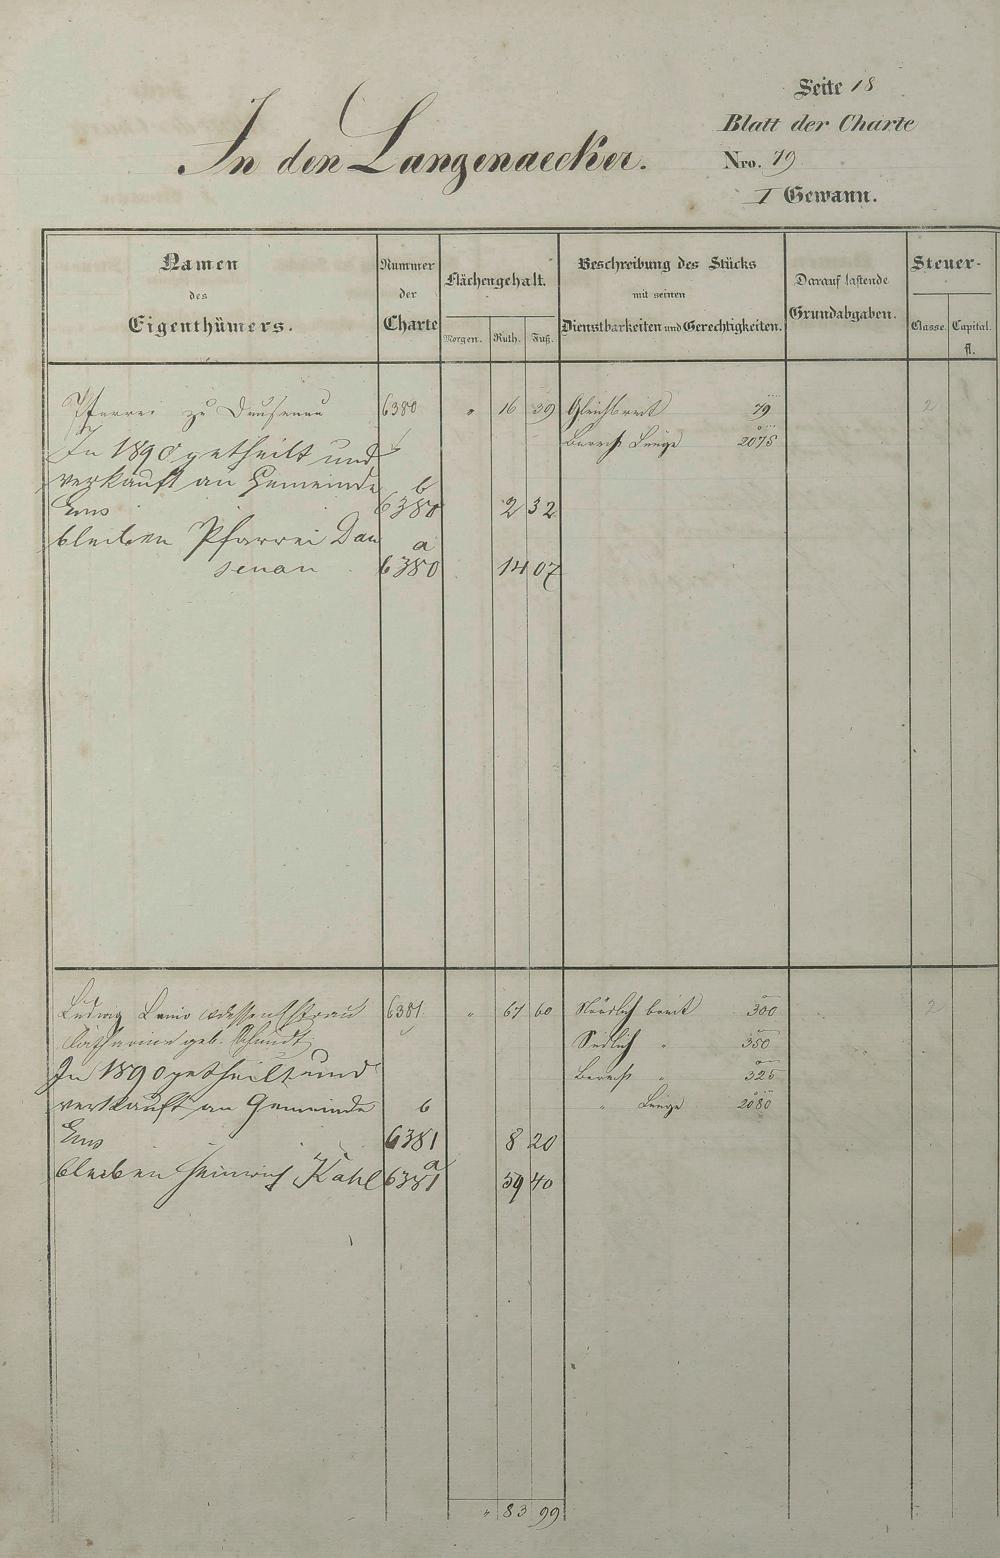 Seite 18
Blatt der Charte
In den Langenaecker.
Nro. 79
I Gewann.
Namen des Eigenthümers.
Nummer der Charte
Flächengehalt.
Morgen. Ruth. Fuß.
Beschreibung des Stücks mit seinen Dienstbarkeiten und Gerechtigkeiten.
Darauf lastende Grundabgaben.
Steuer-
Classe. Capital. fl.
Pfarrei zu Dausenau 6380 " 16 39 Gleichbreit 79
In 1890 getheilt und Länge 2075
verkauft an Gemeinde b
Ems 6380 2 32
bleiben Pfarrei Dau a
senau 6380 14 07
Ludwig dessen Ehefrau 6381 " 67 60 Nördlich breit 300 2
Catharine geb. Schmidt Südlich " 350
In 1890 getheilt und " 325
verkauft an Gemeinde b " Länge 2080
Ems 6381 8 20
bleiben Heinrich Kahl a 6381 59 40
" 83 99